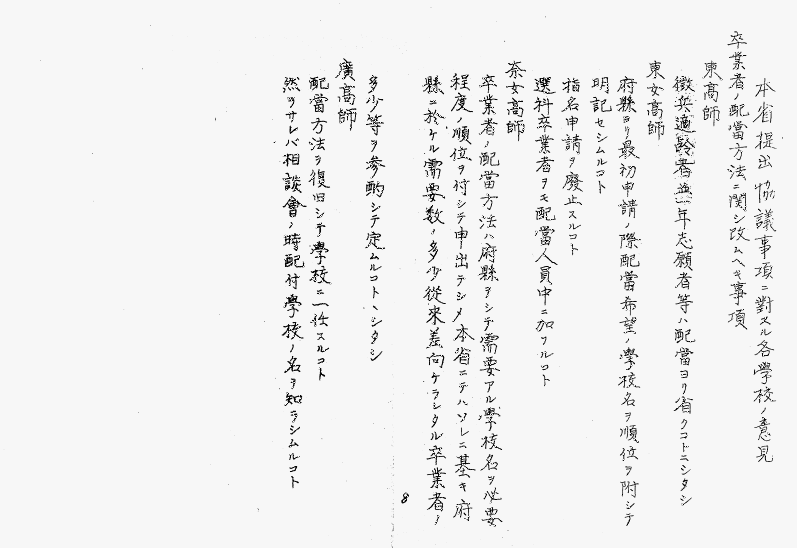 本省提出協議事項ニ對スル各學校ノ意見
卒業者ノ配當方法ニ関シ改ムヘキ事項
東高師
徴兵適齢者並一年志願者等ハ配當ヨリ省クコトニシタシ
東女高師
府縣ヨリ最初申請ノ際配當希望ノ學校名ヲ順位ヲ附シテ
明記セシムルコト
指名申請ヲ廢止スルコト
選科卒業者ヲモ配當人員中ニ加フルコト
奈女高師
卒業者ノ配當方法ハ府縣ヲシテ需要アル學校名ヲ必要
程度ノ順位ヲ付シテ申出テシメ本省ニテハソレニ基キ府
縣ニ於ケル需要数ノ多少從来差向ケラレタル卒業者ノ
8
多少等ヲ参酌シテ定ムルコトヽシタシ
廣高師
配當方法ヲ復旧シテ學校ニ一任スルコト
然ラサレバ相談會ノ時配付學校ノ名ヲ知ラシムルコト